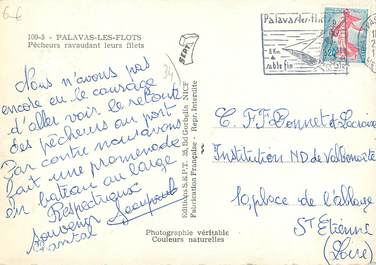 100-3 - PALAVAS-LES-FLOTS
Pêcheurs ravaudant leurs filets
Nous n'avons pas
encore eu le courage
d'aller voir le retour
des pêcheurs au port
Par contre nous avons
fait une promenade
en bateau au large
Respectueux
souvenir
Chantal
SEPT
Editions S.E.P.T. Bd Gorbella NICE
Fabrication Française - Repr. Interdite
Photographie véritable
Couleurs naturelles
Palavas-les-flots
8 Km
sable fin
C. F. F. Bonnet
Institution ND de Valbenoîte
10, place de l'abbaye
St Etienne
(Loire)